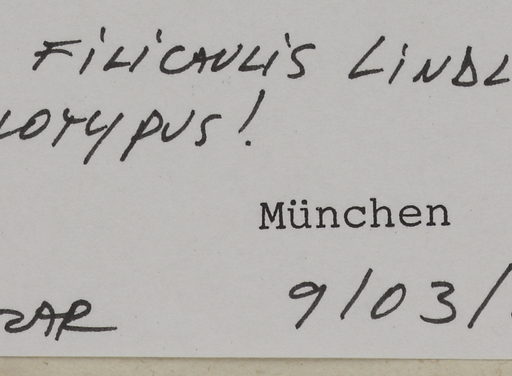 FILICAULIS LINDL
LOTYPUS!
München
ZAR 9/03/